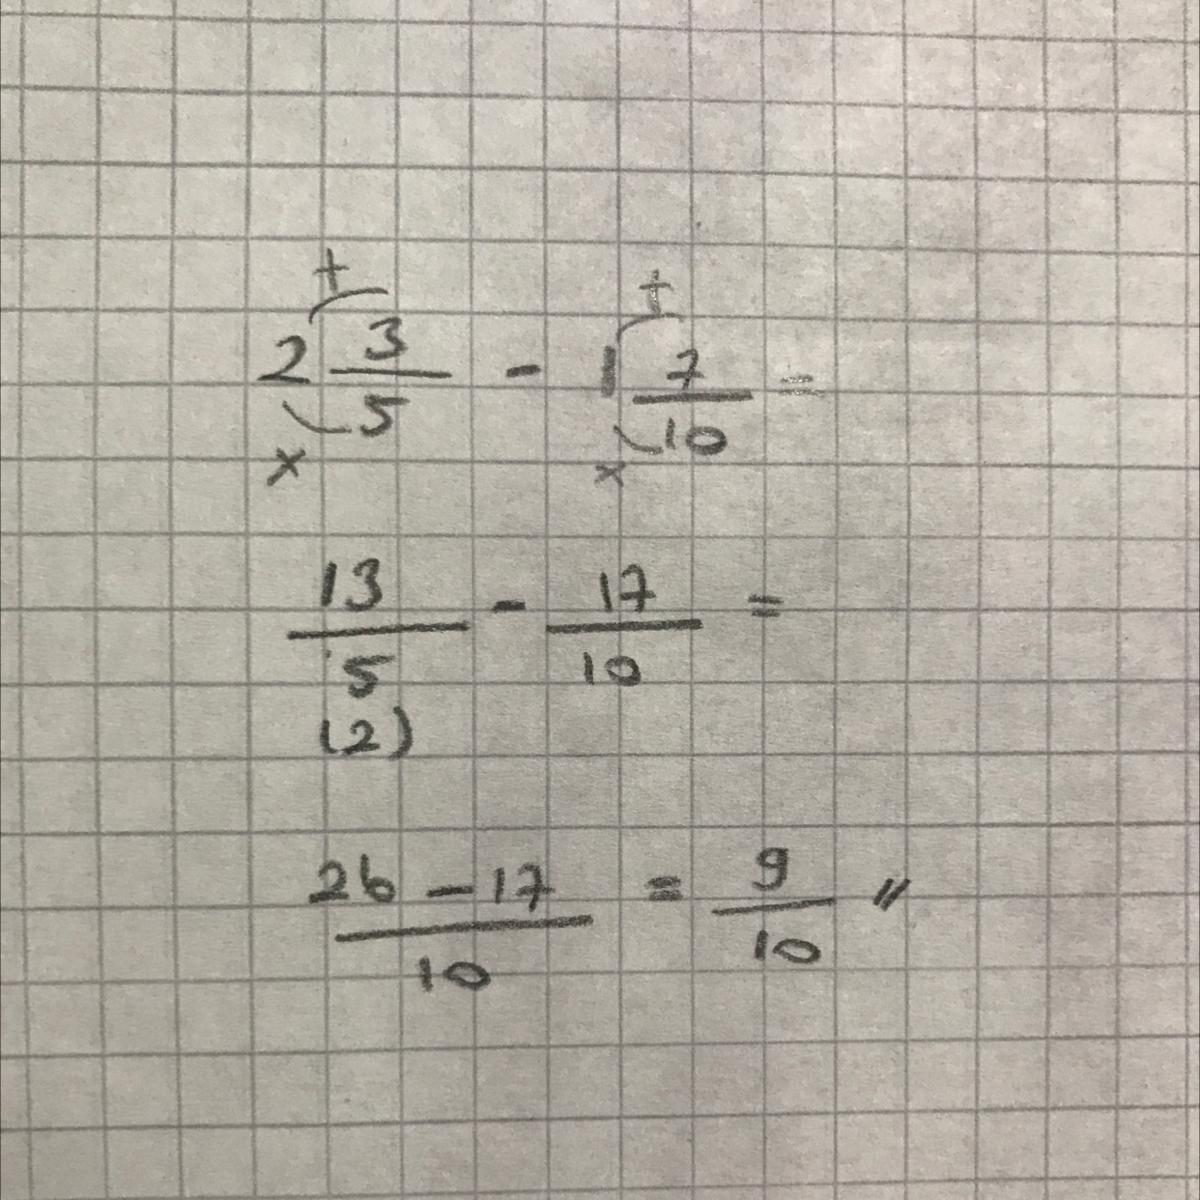 2 3/5 - 1 7/10 =
+ +
x x
13/5 - 17/10 =
(2)
26 - 17/10 = 9/10 //